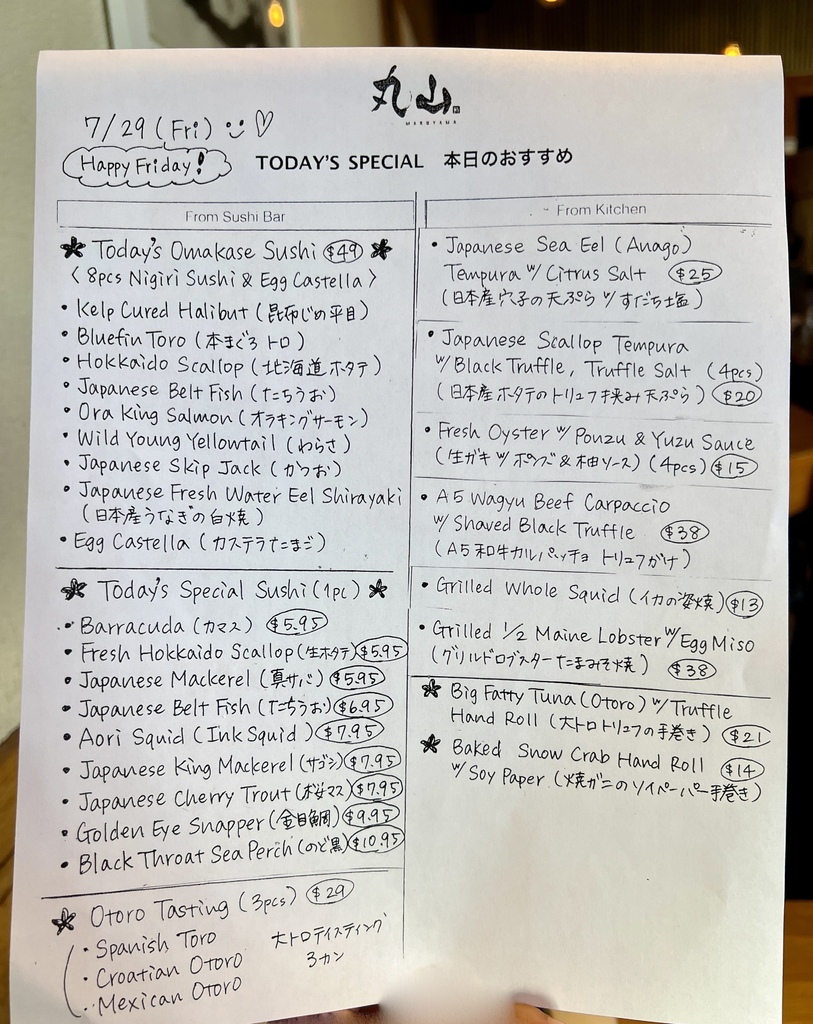 丸山
MARUYAMA
7/29 (Fri)
Happy Friday!
TODAY'S SPECIAL 本日のおすすめ
From Sushi Bar
Today's Omakase Sushi $49
〈 8pcs Nigiri Sushi & Egg Castella 〉
• Kelp Cured Halibut (昆布じめ平目)
• Bluefin Toro (本まぐろ トロ)
• Hokkaido Scallop (北海道ホタテ)
• Japanese Belt Fish (たちうお)
• Ora King Salmon (オラキングサーモン)
• Wild Young Yellowtail (わらさ)
• Japanese Skip Jack (かつお)
• Japanese Fresh Water Eel Shirayaki
(日本産うなぎの白焼)
• Egg Castella (カステラたまご)
Today's Special Sushi (1pc)
• Barracuda (カマス) $5.95
• Fresh Hokkaido Scallop (生ホタテ) $5.95
• Japanese Mackerel (真サバ) $5.95
• Japanese Belt Fish (たちうお) $6.95
• Aori Squid (Ink Squid) $7.95
• Japanese King Mackerel (サゴシ) $7.95
• Japanese Cherry Trout (桜マス) $7.95
• Golden Eye Snapper (金目鯛) $9.95
• Black Throat Sea Perch (のど黒) $10.95
Otoro Tasting (3pcs) $29
• Spanish Toro
• Croatian Otoro
• Mexican Otoro
大トロテイスティング
3カン
From Kitchen
• Japanese Sea Eel (Anago)
Tempura w/ Citrus Salt $25
(日本産穴子の天ぷら w/ すだち塩)
• Japanese Scallop Tempura
w/ Black Truffle, Truffle Salt (4pcs)
(日本産ホタテのトリュフ挟み天ぷら) $20
• Fresh Oyster w/ Ponzu & Yuzu Sauce
(生ガキ w/ ポンズ & 柚ソース) (4pcs) $15
• A5 Wagyu Beef Carpaccio
w/ Shaved Black Truffle $38
(A5和牛カルパッチョ トリュフがけ)
• Grilled Whole Squid (イカの姿焼) $13
• Grilled 1/2 Maine Lobster w/ Egg Miso
(グリルドロブスターたまみそ焼) $38
Big Fatty Tuna (Otoro) w/ Truffle
Hand Roll (大トロトリュフの手巻き) $21
Baked Snow Crab Hand Roll
w/ Soy Paper (焼ガニのソイペーパー手巻き) $14